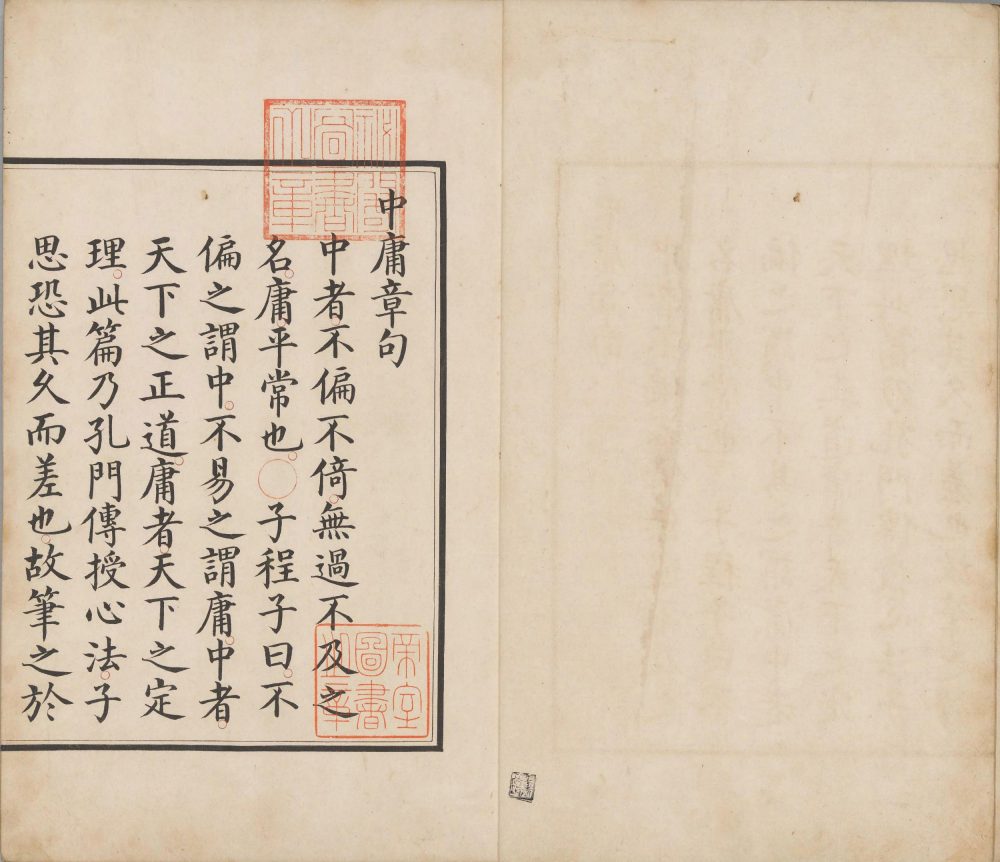 中庸章句
中者。不偏不倚。無過不及之
名。庸。平常也。○子程子曰。不
偏之謂中。不易之謂庸。中者。
天下之正道。庸者。天下之定
理。此篇乃孔門傳授心法。子
思恐其久而差也。故筆之於
帝室圖書之章